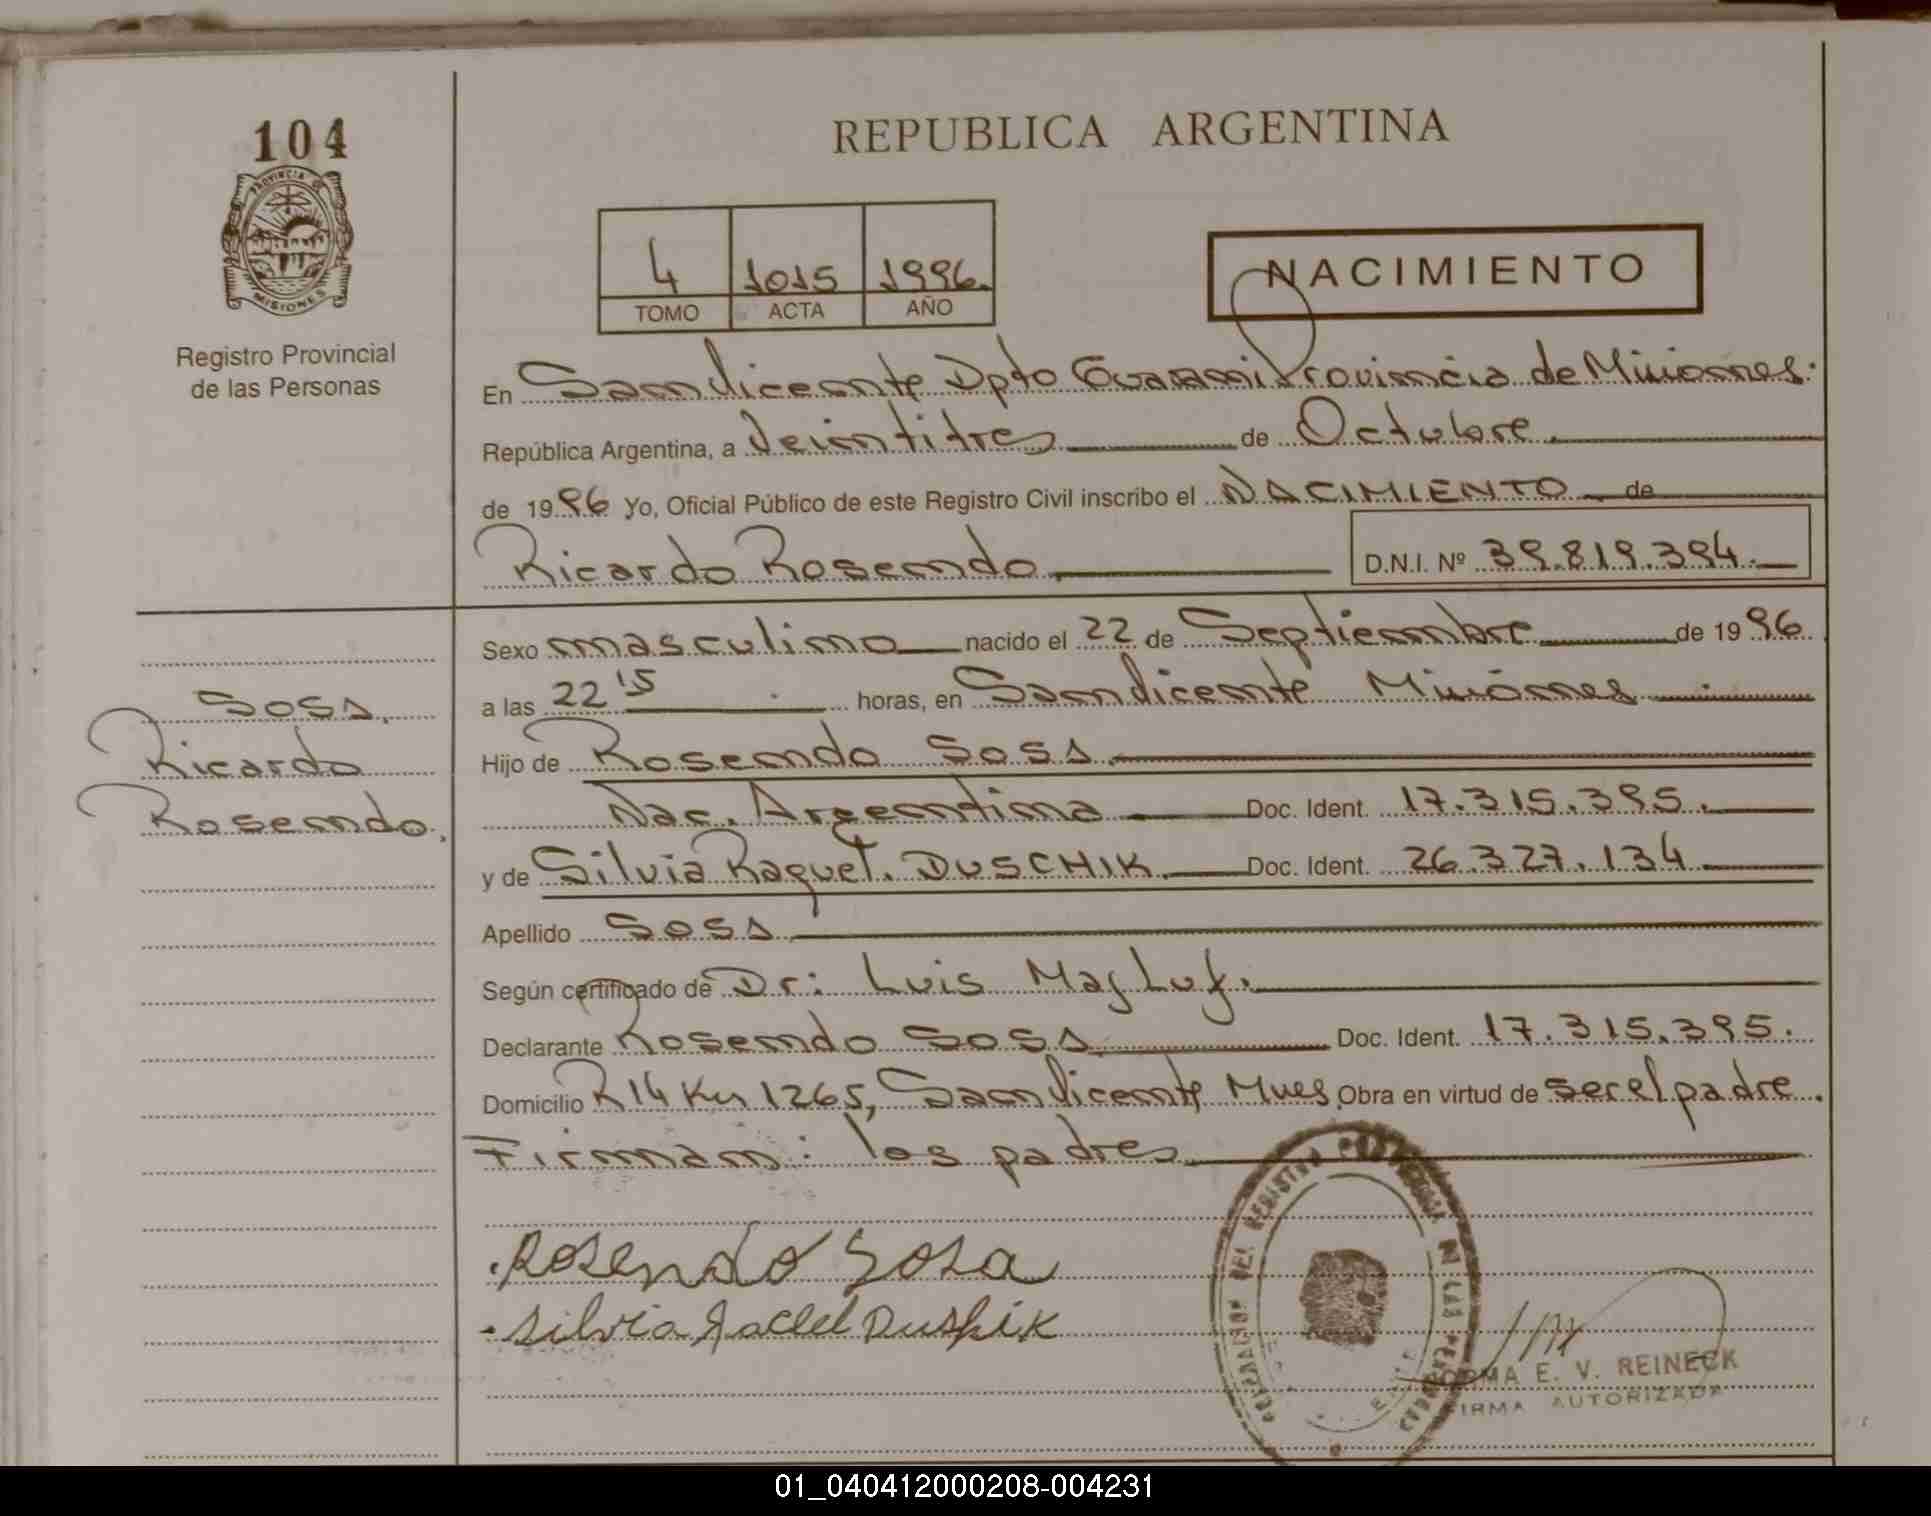 104
PROVINCIA DE
MISIONES
Registro Provincial
de las Personas
REPUBLICA ARGENTINA
4 1015 1996.
TOMO ACTA AÑO
NACIMIENTO
En San Vicente Dpto Guarani Provincia de Misiones.
República Argentina, a Veintitres de Octubre.
de 1996 Yo, Oficial Público de este Registro Civil inscribo el NACIMIENTO de
Ricardo Rosendo. D.N.I. Nº 39.819.394.
Sexo masculino nacido el 22 de Septiembre de 1996.
a las 22 15 horas, en San Vicente Misiones
Sosa.
Ricardo
Rosendo.
Hijo de Rosendo Sosa.
Nac. Argentina Doc. Ident. 17.315.395.
y de Silvia Raquel. DUSCHIK. Doc. Ident. 26.327.134
Apellido Sosa
Según certificado de Dr: Luis Magluf.
Declarante Rosendo Sosa Doc. Ident. 17.315.395.
Domicilio R 14 Km 1265, San Vicente Mnes. Obra en virtud de ser el padre.
Firman: los padres
Rosendo Sosa
Silvia Duskik
E. V. REINECK
FIRMA AUTORIZADA
01_040412000208-004231